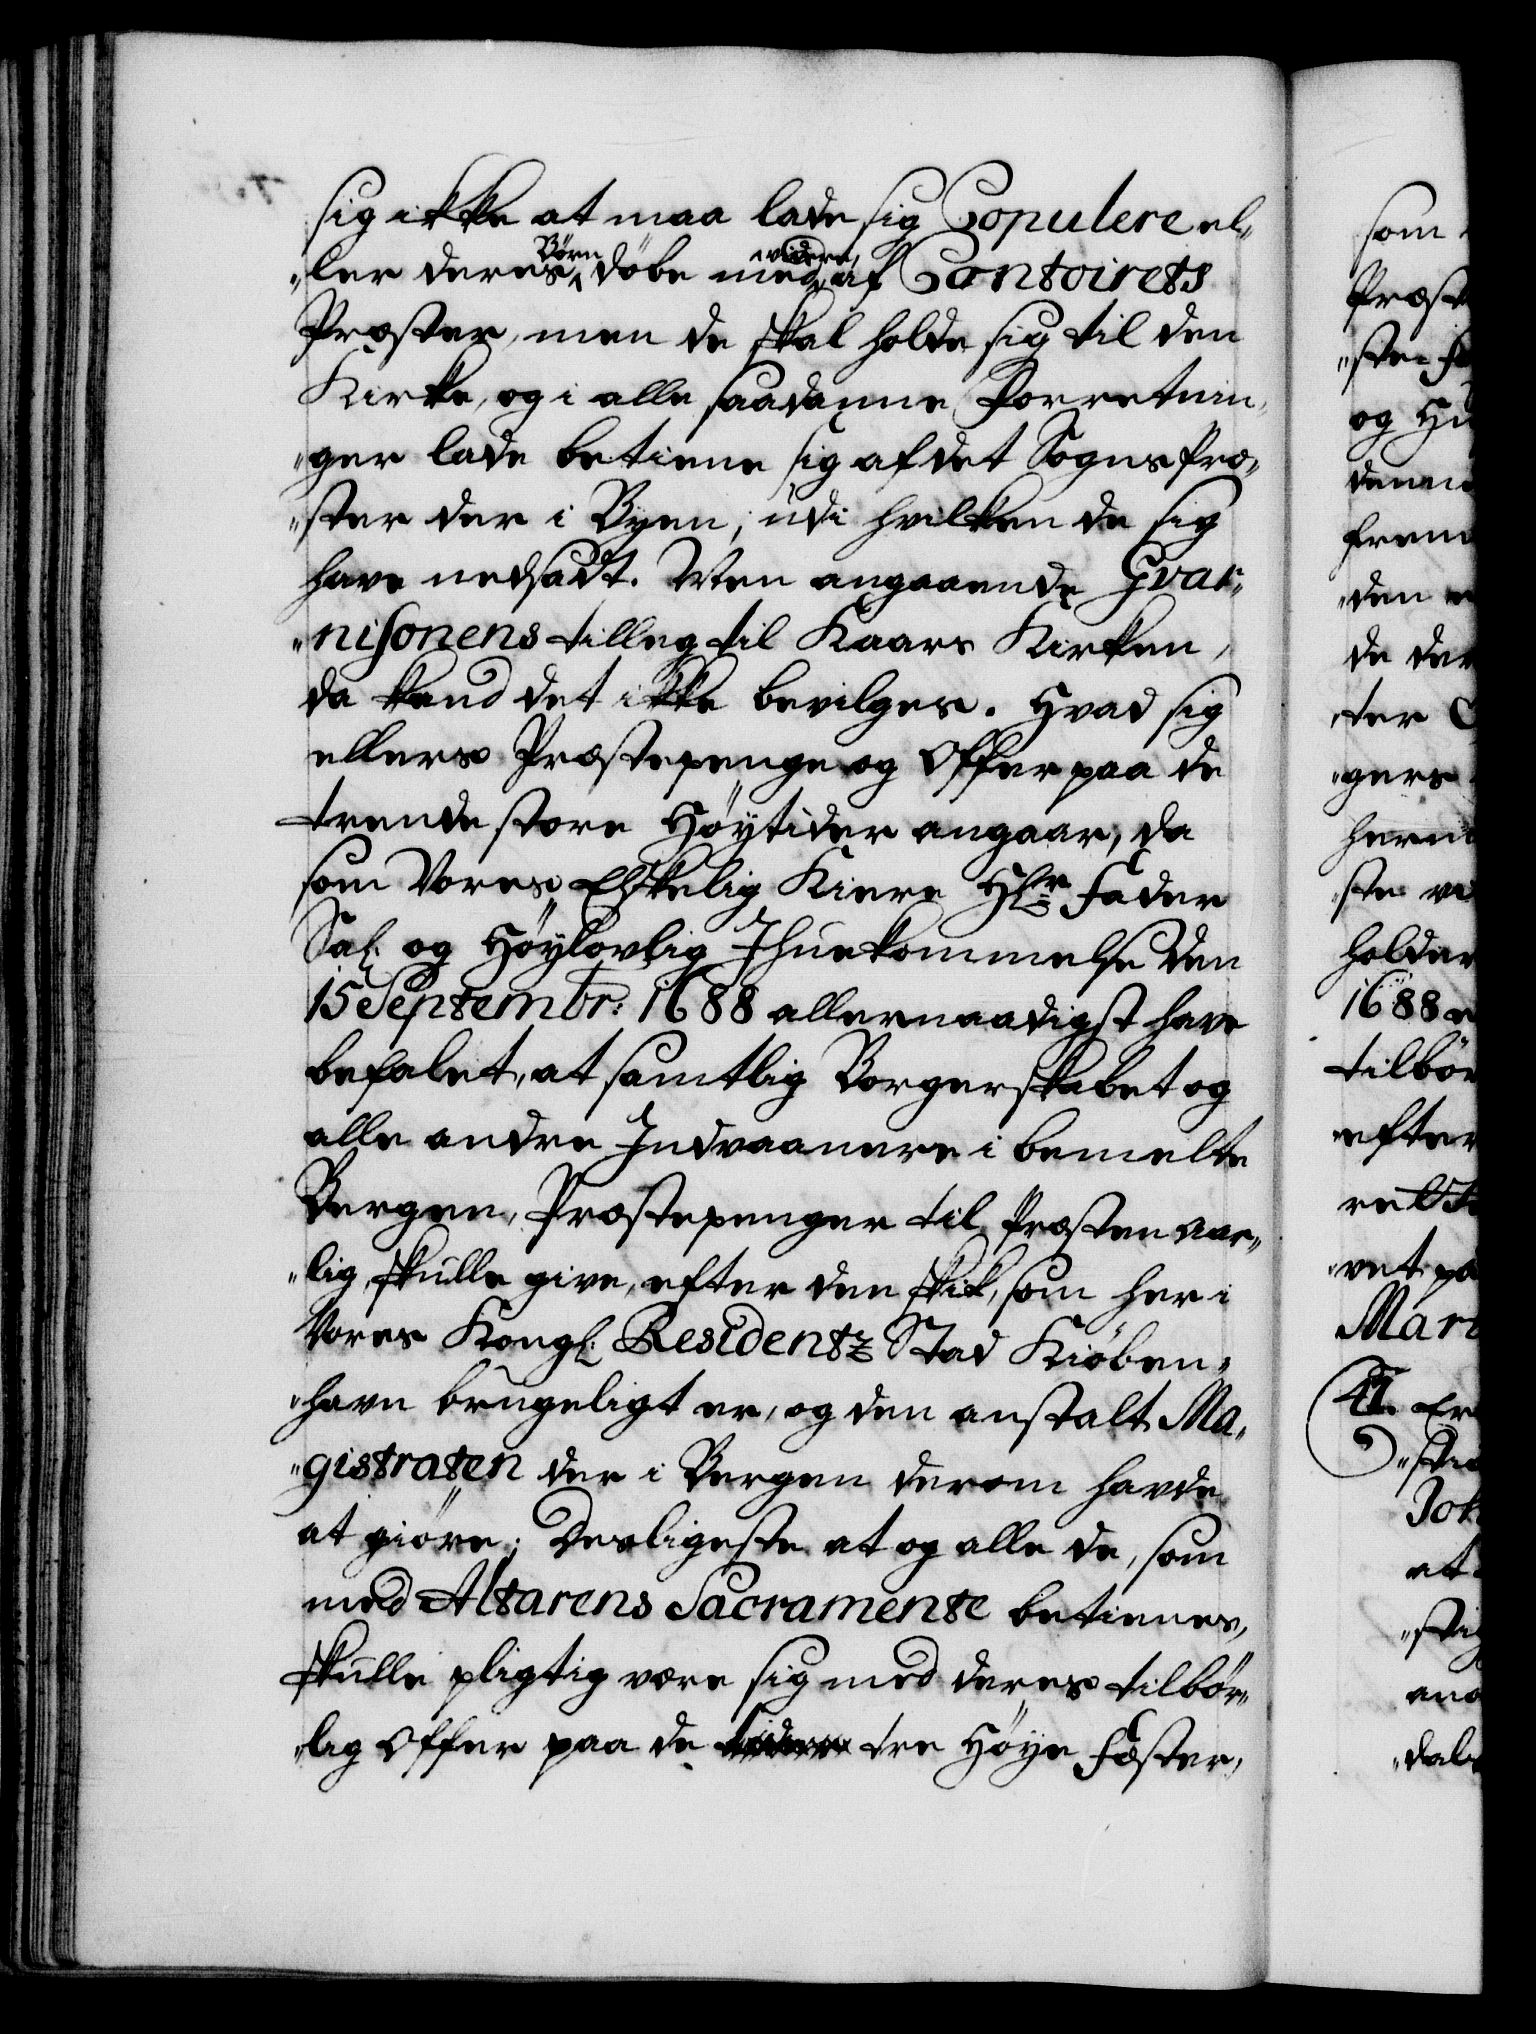 sig ikke at maa lade sig Copulere el„
„ler deres Börn döbe med videre, af Contoirets
Præster, men de skal holde sig til den
Kirke, og i alle saadanne Forretnin„
„ger lade betiene sig af det Sogns Præ„
„ster der i Byen, udi hvilken de sig
have nedsadt. Men angaaende Gvar„
„nisonens tilleg til Kaars Kirken,
da kand det ikke bevilges. Hvad sig
ellers Præstepenge og Offer paa de
trende store Höytider angaar, da
som Vores Elskelig Kiere Hr Fader
Sal: og Höylovlig Ihuekommelse den
15 Septembr: 1688 allernaadigst have
befalet, at samtlig Borgerskabet og
alle andre Indvaanere i bemelte
Bergen, Præstepenger til Præsten aar„
„lig skulle give, efter den skik, som her i
Vores Kongl: Residentz Stad Kiöben„
„havn brugeligt er, og den anstalt Ma„
„gistraten der i Bergen derom havde
at giöre; Desligeste at og alle de, som
med Altarens Sacramente betienes,
skulle pligtig være sig med deres tilbör„
„lig Offer paa de tre Höye Fæster,
som
Præst
„ste
og
denn
frem
„den
de der
„ter
„gers
hern
„ste
holder
1688
tilbör
„efter
„vet pa
Mart
41. Er
Joh
at
„stig
and
„dal